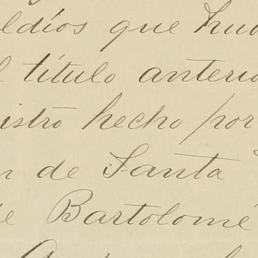 ldíos que hub
l título anterio
istro hecho por
n de Santa
e Bartolomé